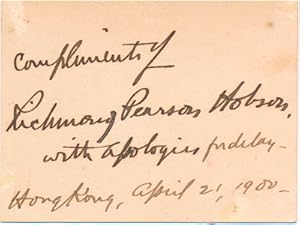 Compliments of
Richmond Pearson Hobson,
with apologies for delay—
Hong Kong, April 21, 1900—